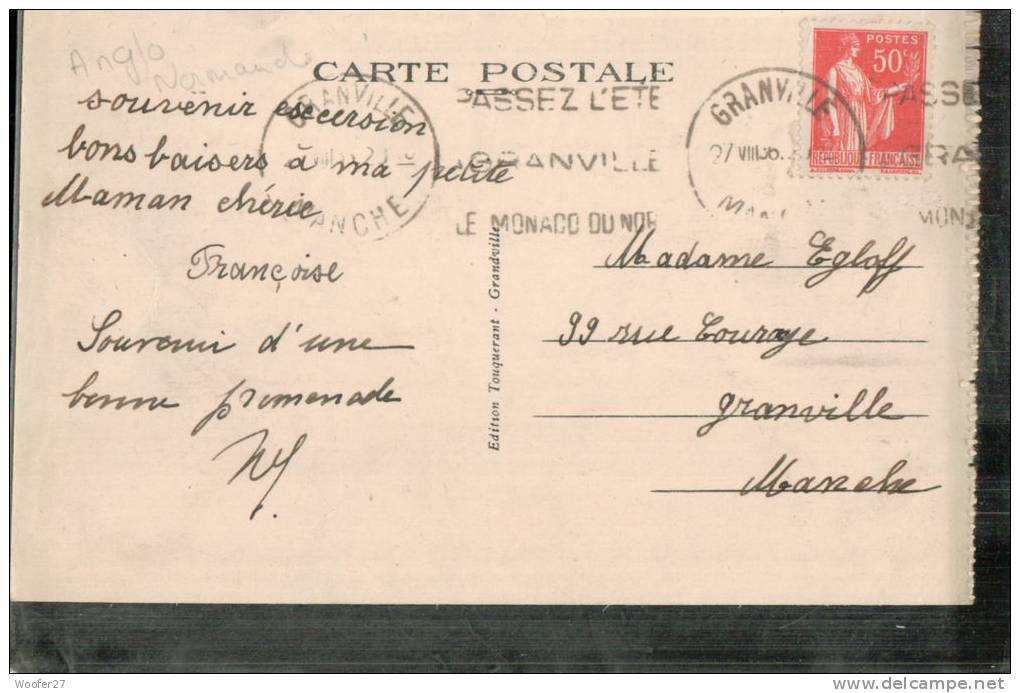 Anglo
Normande
CARTE POSTALE
souvenir excersion
bons baisers à ma petite
Maman chérie
Françoise
Souvenir d'une
bonne promenade
GRANVILLE
MANCHE
PASSEZ L'ÉTÉ
GRANVILLE
LE MONACO DU NOR
GRANVILLE
27 VIII 36
PASSE
GRA
MON
POSTES
50c
REPUBLIQUE FRANCAISE
Edition Touquerant - Grandville
Madame Egloff
99 rue Couraye
Granville
Manche
Woofer27
www.delcampe.net